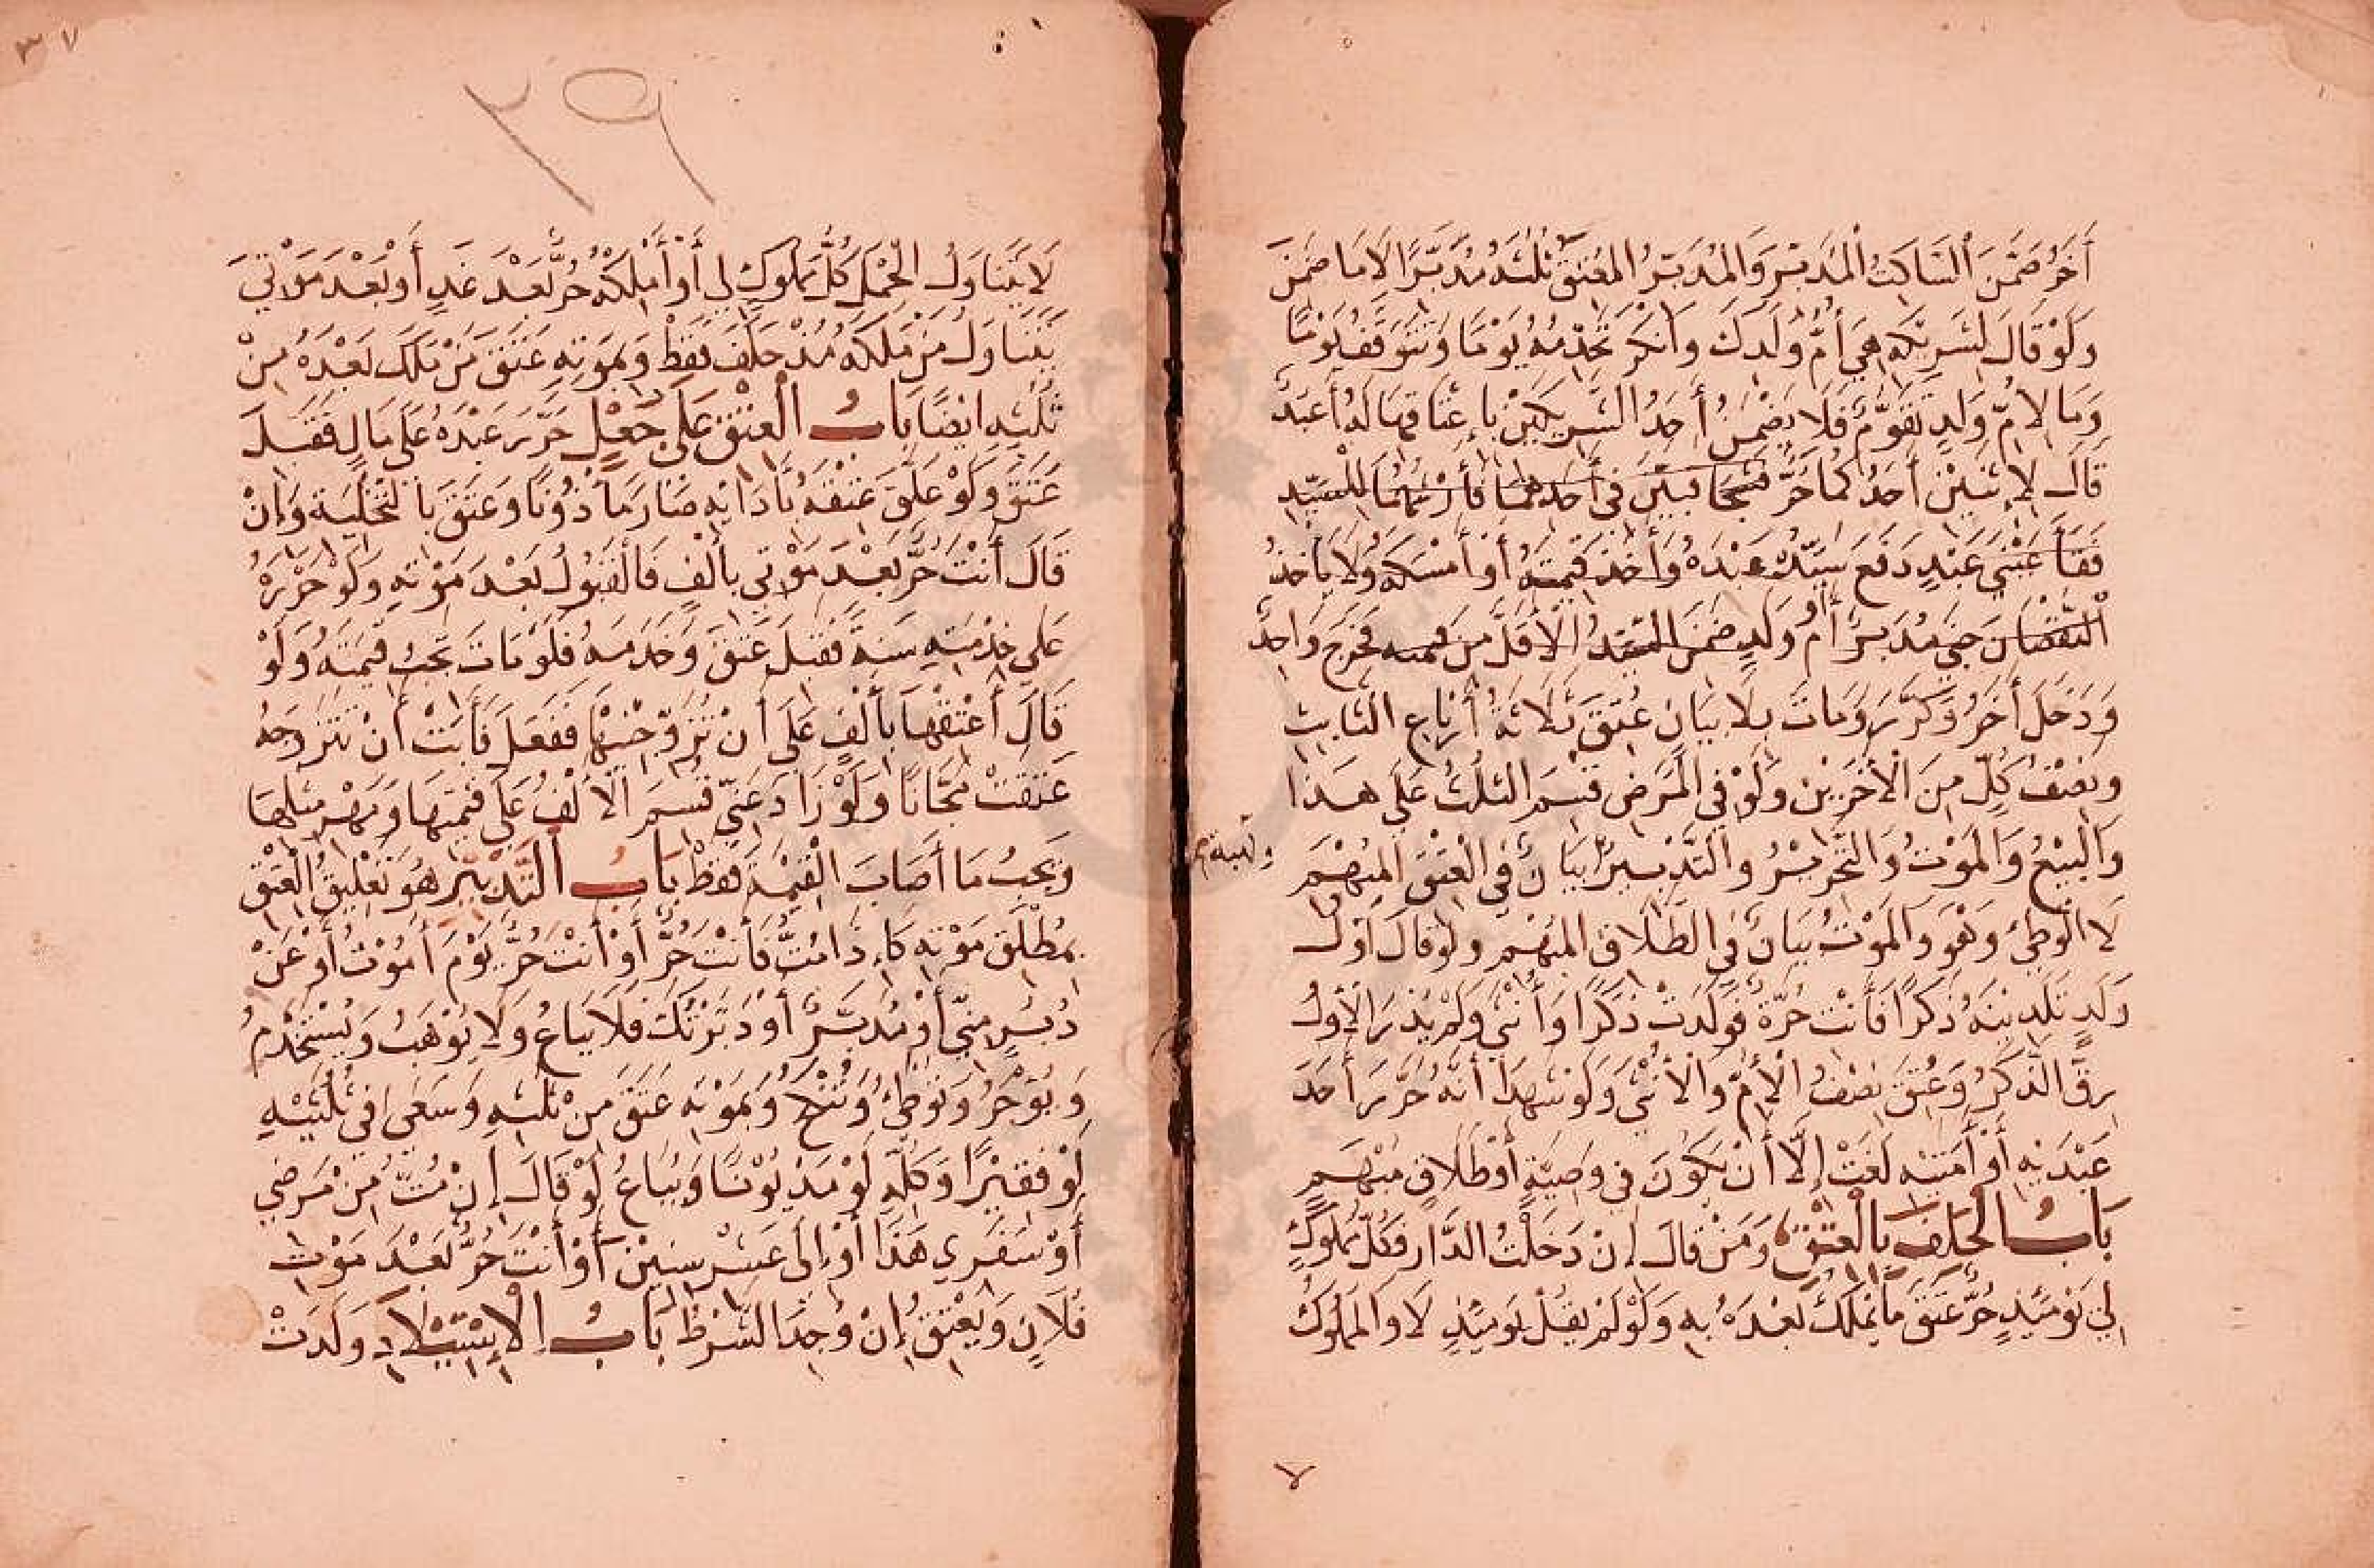 أَخَرُ ضَمَّنَ السَّاكِتُ الْمُدَبِّرَ وَالْمُدَبِّرُ الْمُعْتِقَ ثُلُثَهُ مُدَبَّرًا لَا مَا ضَمِنَ
وَلَوْ قَالَ لِشَرِيكِهِ هِيَ أُمُّ وَلَدِكَ وَأَنْكَرَ تَخْدُمُهُ يَوْمًا وَتَتَوَقَّفُ يَوْمًا
وَمَا لِأُمِّ وَلَدٍ تَقَوُّمٌ فَلَا يَضْمَنُ أَحَدُ الشَّرِيكَيْنِ بِإِعْتَاقِهَا لَهُ أَعْبُدٌ
قَالَ لِإِثْنَيْنِ أَحَدُكُمَا حُرٌّ فَشُجَّا فَبَيَّنَ فِي أَحَدِهِمَا فَأَرْشُهُمَا لِلسَّيِّدِ
فَقَأَ عَيْنَيْ عَبْدٍ دَفَعَ سَيِّدُهُ عَبْدَهُ وَأَخَذَ قِيمَتَهُ أَوْ أَمْسَكَهُ وَلَا يَأْخُذُ
النُّقْصَانَ جَنَى مُدَبَّرٌ أَوْ أُمُّ وَلَدٍ ضَمِنَ السَّيِّدُ الْأَقَلَّ مِنْ قِيمَتِهِ فَخَرَجَ وَاحِدٌ
وَدَخَلَ أَخَرُ وَكَرَّرَ وَمَاتَ بِلَا بَيَانٍ عُتِقَ ثَلَاثَةُ أَرْبَاعِ الثَّابِتِ
وَنِصْفُ كُلٍّ مِنَ الْأَخَرَيْنِ وَلَوْ فِي الْمَرَضِ قُسِمَ الثُّلُثُ عَلَى هَذَا
وَالْبَيْعُ وَالْمَوْتُ وَالتَّحْرِيرُ وَالتَّدْبِيرُ بَيَانٌ فِي الْعِتْقِ الْمُبْهَمِ
لَا الْوَطْئُ وَهُوَ وَالْمَوْتُ بَيَانٌ فِي الطَّلَاقِ الْمُبْهَمِ وَلَوْ قَالَ أَوَّلُ
وَلَدٍ تَلِدِينَهُ ذَكَرًا فَأَنْتِ حُرَّةٌ فَوَلَدَتْ ذَكَرًا وَأُنْثَى وَلَمْ يُدْرَ الْأَوَّلُ
رِقَّ الذَّكَرُ وَعُتِقَ نِصْفُ الْأُمِّ وَالْأُنْثَى وَلَوْ شَهِدَا أَنَّهُ حَرَّرَ أَحَدَ
عَبْدَيْهِ أَوْ أَمَتَيْهِ لَغَتْ إِلَّا أَنْ يَكُونَ فِي وَصِيَّةٍ أَوْ طَلَاقٍ مُبْهَمٍ
بَابُ الْحَلِفِ بِالْعِتْقِ وَمَنْ قَالَ إِنْ دَخَلْتُ الدَّارَ فَكُلُّ مَمْلُوكٍ
لِي يَوْمَئِذٍ حُرٌّ عَتَقَ مَا يَمْلِكُ بَعْدَهُ بِهِ وَلَوْ لَمْ يَقُلْ يَوْمَئِذٍ لَا وَالْمَمْلُوكُ
٣٧
٣٩
لَا يَتَنَاوَلُ الْحَمْلَ كُلُّ مَمْلُوكٍ لِي أَوْ أَمْلِكُهُ حُرٌّ بَعْدَ غَدٍ أَوْ بَعْدَ مَوْتِي
يَتَنَاوَلُ مَنْ مَلَكَهُ مُنْذُ حَلَفَ فَقَطْ وَبِمَوْتِهِ عَتَقَ مَنْ مَلَكَ بَعْدَهُ مِنْ
ثُلُثِهِ أَيْضًا بَابُ الْعِتْقِ عَلَى جُعْلٍ حَرَّرَ عَبْدَهُ عَلَى مَالٍ فَقَبِلَ
عَتَقَ وَلَوْ عَلَّقَ عِتْقَهُ بِأَدَائِهِ صَارَ مَأْذُونًا وَعَتَقَ بِالتَّخْلِيَةِ وَإِنْ
قَالَ أَنْتَ حُرٌّ بَعْدَ مَوْتِي بِأَلْفٍ فَالْقَبُولُ بَعْدَ مَوْتِهِ وَلَوْ حَرَّرَهُ
عَلَى خِدْمَتِهِ سَنَةً فَقَبِلَ عَتَقَ وَخَدَمَهُ فَلَوْ مَاتَ تَجِبُ قِيمَتُهُ وَلَوْ
قَالَ أَعْتِقْهَا بِأَلْفٍ عَلَى أَنْ تُزَوِّجَنِيهَا فَفَعَلَ فَأَبَتْ أَنْ تَتَزَوَّجَهُ
عَتَقَتْ مَجَّانًا وَلَوْ زَادَ عَنِّي قُسِمَ الْأَلْفُ عَلَى قِيمَتِهَا وَمَهْرِ مِثْلِهَا
وَيَجِبُ مَا أَصَابَ الْقِيمَةَ فَقَطْ بَابُ التَّدْبِيرِ هُوَ تَعْلِيقُ الْعِتْقِ
بِمُطْلَقِ مَوْتِهِ كَإِذَا مُتُّ فَأَنْتَ حُرٌّ أَوْ أَنْتَ حُرٌّ يَوْمَ أَمُوتُ أَوْ عَنْ
دُبُرٍ مِنِّي أَوْ مُدَبَّرٌ أَوْ دَبَّرْتُكَ فَلَا يُبَاعُ وَلَا يُوهَبُ وَيُسْتَخْدَمُ
وَيُوْجَرُ وَتُوطَئُ وَتُنْكَحُ وَبِمَوْتِهِ عَتَقَ مِنْ ثُلُثِهِ وَسَعَى فِي ثُلُثَيْهِ
لَوْ فَقِيْرًا وَكُلِّهِ لَوْ مَدْيُوْنًا وَيُبَاعُ لَوْ قَالَ إِنْ مُتُّ مِنْ مَرَضِي
أَوْ سَفَرِي هَذَا أَوْ إِلَى عَشْرِ سِنِيْنَ أَوْ أَنْتَ حُرٌّ بَعْدَ مَوْتِ
فُلَانٍ وَيَعْتِقُ إِنْ وُجِدَ الشَّرْطُ بَابُ الْإِسْتِيْلَادِ وَلَدَتْ